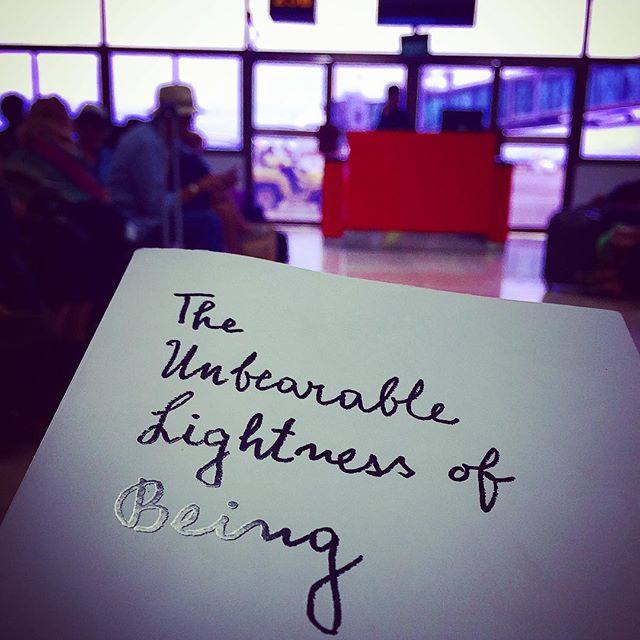 The
Unbearable
Lightness of
Being